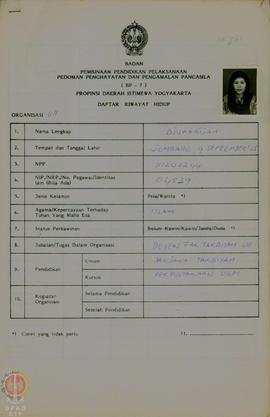 BADAN
PEMBINAAN PENDIDIKAN PELAKSANAAN
PEDOMAN PENGHAYATAN DAN PENGAMALAN PANCASILA
( BP - 7 )
PROPINSI DAERAH ISTIMEWA YOGYAKARTA
DAFTAR RIWAYAT HIDUP
ORGANISASI
1. Nama Lengkap
2. Tempat dan Tanggal Lahir JOMBANG 9 SEPTEMBER
3. NPP
4. NIP/NRP/No. Pegawai/Identitas lain (Bila Ada)
5. Jenis Kelamin Pria/Wanita *)
6. Agama/Kepercayaan Terhadap Tuhan Yang Maha Esa ISLAM
7. Status Perkawinan Belum Kawin/Kawin/Janda/Duda *)
8. Jabatan/Tugas Dalam Organisasi DOSEN FAK TARBIYAH
9. Pendidikan Umum SARJANA TARBIYAH
Kursus PERPUSTAKAAN UGM
10. Kegiatan Organisasi Selama Pendidikan
Setelah Pendidikan
*) Coret yang tidak perlu 11.